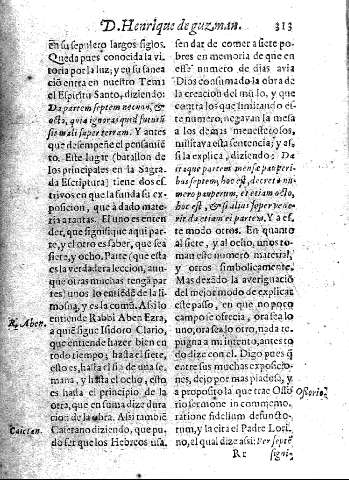 D. Henrique de guzman. 313
en su sepulcro largos siglos.
Queda pues conocida la vi-
toria por la luz; y en su sanea
ció entra en nuestro Tema
el Espiritu Santo, diziendo:
Da partem septem necnon, &
octo, quia ignoras quid futurũ
sit mali super terram. Y antes
que desempeñe el pensamiẽ-
to. Este lugar (batallon de
los principales en la Sagra-
da Escriptura) tiene dos es-
trivos en que la funda su ex-
posicion, que à dado mate-
ria a tantas. El uno es enten-
der, que signifique aqui par-
te, y el otro es saber, que sea
siete, y ocho. Parte (que esta
es la verdadera leccion, aun-
que otras muchas tenga par
tes) unos lo entiẽdẽ de la li-
mosna, y es la comũ. Assi lo
R. Aben. entiende Rabbi Aben Ezra,
a quiẽ sigue Isidoro Clario,
que entiende hazer bien en
todo tiempo; hasta el siete,
esto es, hasta el fin de una se-
mana, y hasta el ocho, esto
es hasta el principio de la
otra, que en suma dize dura
cion de la obra. Assi tambiẽ
Caietan. Caietano diziendo, que pu-
do ser que los Hebreos usa-
sen dat de comer a siete po-
bres en memoria de que en
esse numero de dias avia
Dios consumado la obra de
la creacion del mũdo, y que
contra los que limitando es-
te numero, negavan la mesa
a los demas menesterosos,
militava esta sentencia; y as-
si la explica, diziendo: Da
itaque partem mensæ pauperi-
bus septem, hoc est, decreto nu-
mero pauperum, et etiam octo,
hoc est, & si alius super vene-
rit da etiam ei partem. Y a es-
te modo otros. En quanto
al siete, y al ocho, unos to-
man este numero material,
y otros simbolicamente.
Mas dexãdo la averiguaciõ
del mejor modo de explicar
este passo, en que no poco
campo se ofrecia, ora sea lo
uno, ora sea lo otro, nada re-
pugna a mi intento, antes to
do dize con el. Digo pues q̃
entre sus muchas exposicio-
nes, dejo por mas piadosa, y
a proposito la que trae Oso Osorio.
rio sermone in commemo-
ratione fidelium defuncto-
rum, y la cita el Padre Lori-
no, el qual dize assi: Per septẽ
Rr signi-